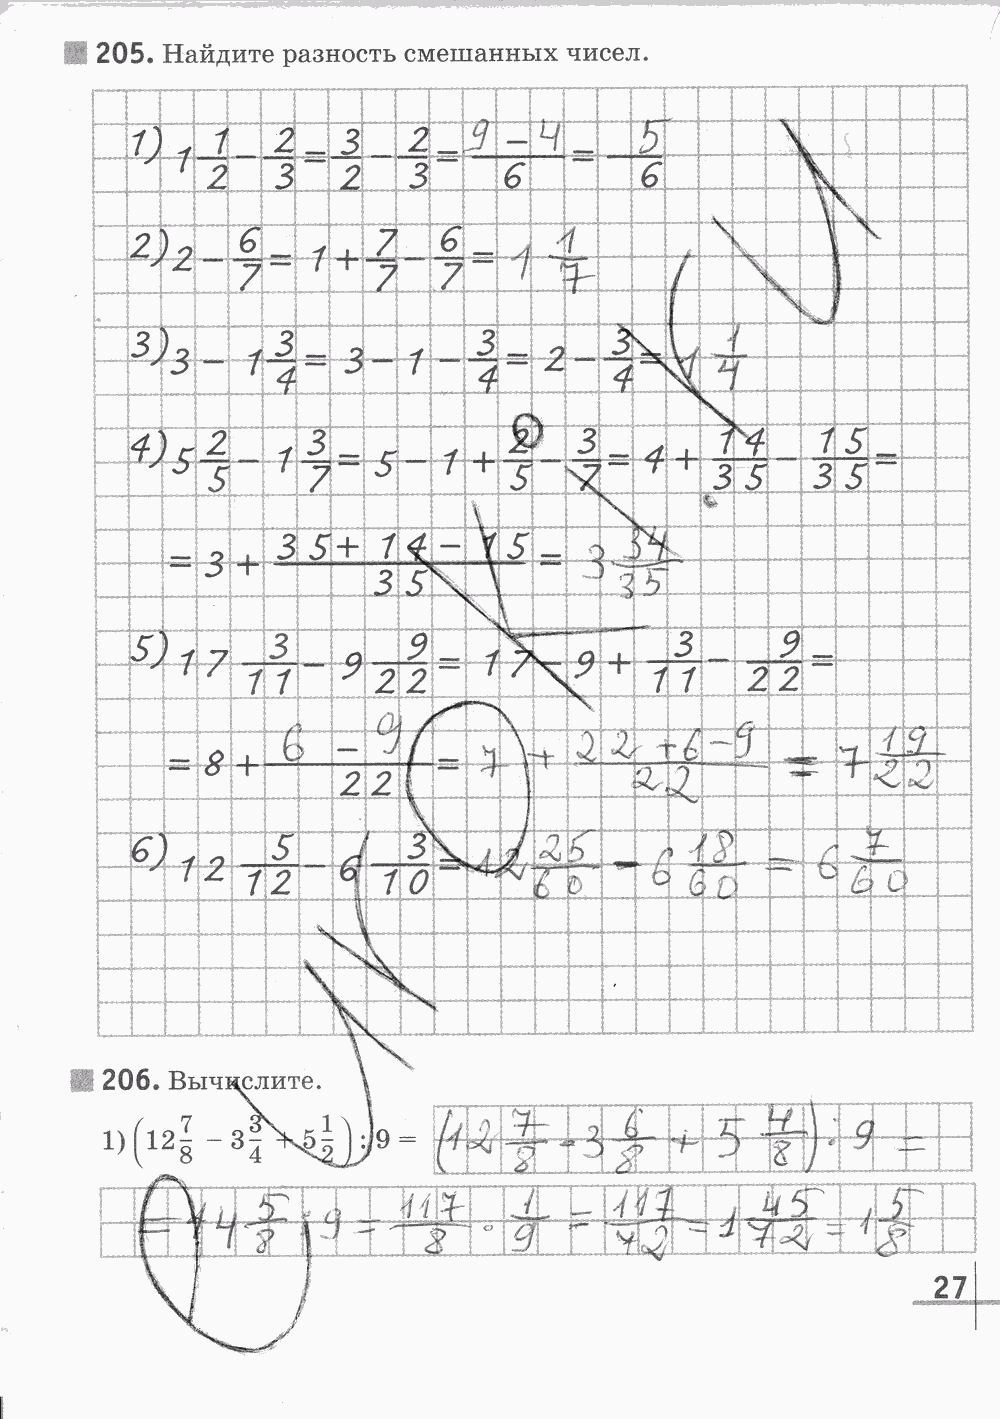 205. Найдите разность смешанных чисел.
1) 1 1/2 − 2/3 = 3/2 − 2/3 = (9 − 4)/6 = 5/6
2) 2 − 6/7 = 1 + 7/7 − 6/7 = 1 1/7
3) 3 − 1 3/4 = 3 − 1 − 3/4 = 2 − 3/4 = 1 1/4
4) 5 2/5 − 1 3/7 = 5 − 1 + 2/5 − 3/7 = 4 + 14/35 − 15/35 =
= 3 + (35 + 14 − 15)/35 = 3 34/35
5) 17 3/11 − 9 9/22 = 17 − 9 + 3/11 − 9/22 =
= 8 + (6 − 9)/22 = 7 + (22 + 6 − 9)/22 = 7 19/22
6) 12 5/12 − 6 3/10 = 12 25/60 − 6 18/60 = 6 7/60
206. Вычислите.
1) (12 7/8 − 3 3/4 + 5 1/2) : 9 = (12 7/8 − 3 6/8 + 5 4/8) : 9 =
= 14 5/8 : 9 = 117/8 · 1/9 = 117/72 = 1 45/72 = 1 5/8
27